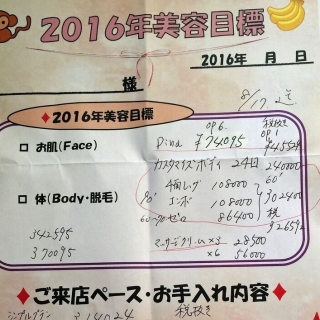 2016年美容目標
2016年 月 日
様
8/17
2016年美容目標
税抜き
□ お肌(Face)
¥74095
カスタマイズボディ 24日 240000
□ 体(Body・脱毛)
90' 108000 60'
108000 302400
60~70 ゼロ 86400 税
342595
370095
マッサージクリーム×3 28500
×6 56000
♦ご来店ペース・お手入れ内容♦
シンプルプラン 314024 税抜き